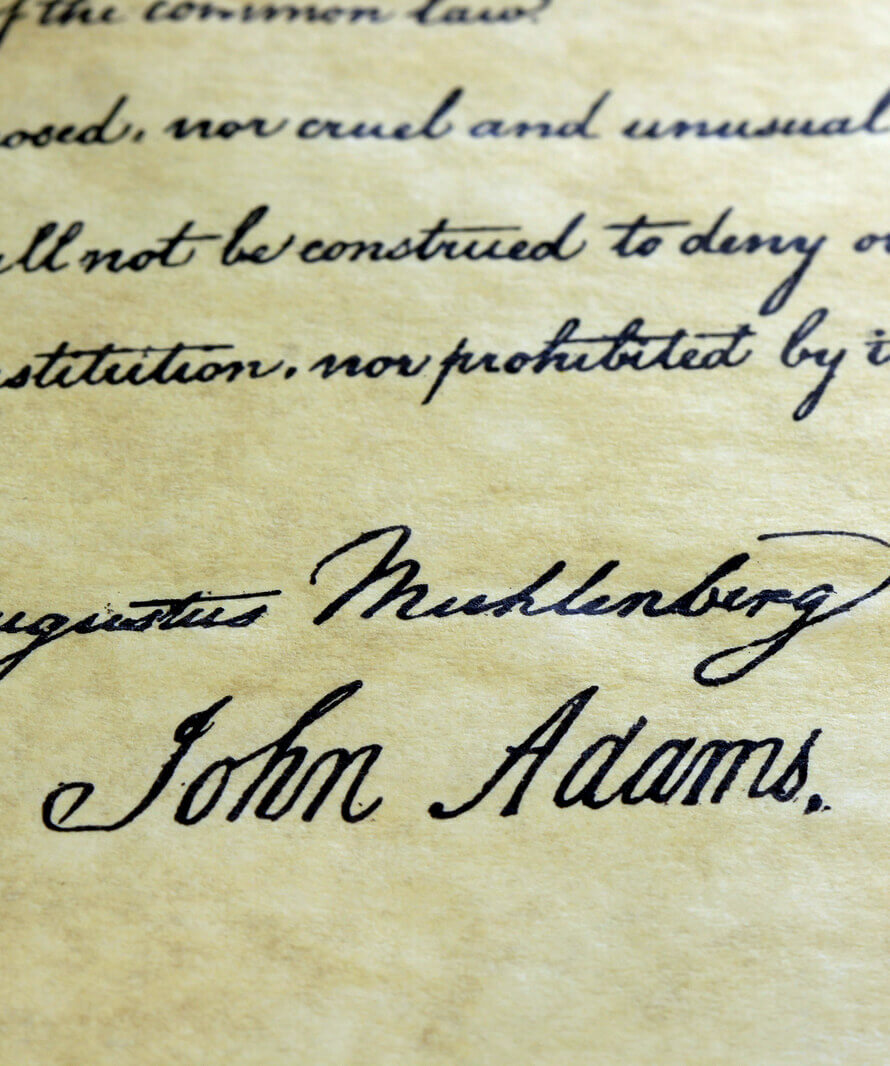 of the common law.
osed, nor cruel and unusual
all not be construed to deny or
stitution, nor prohibited by i
ugustus Muhlenberg
John Adams.